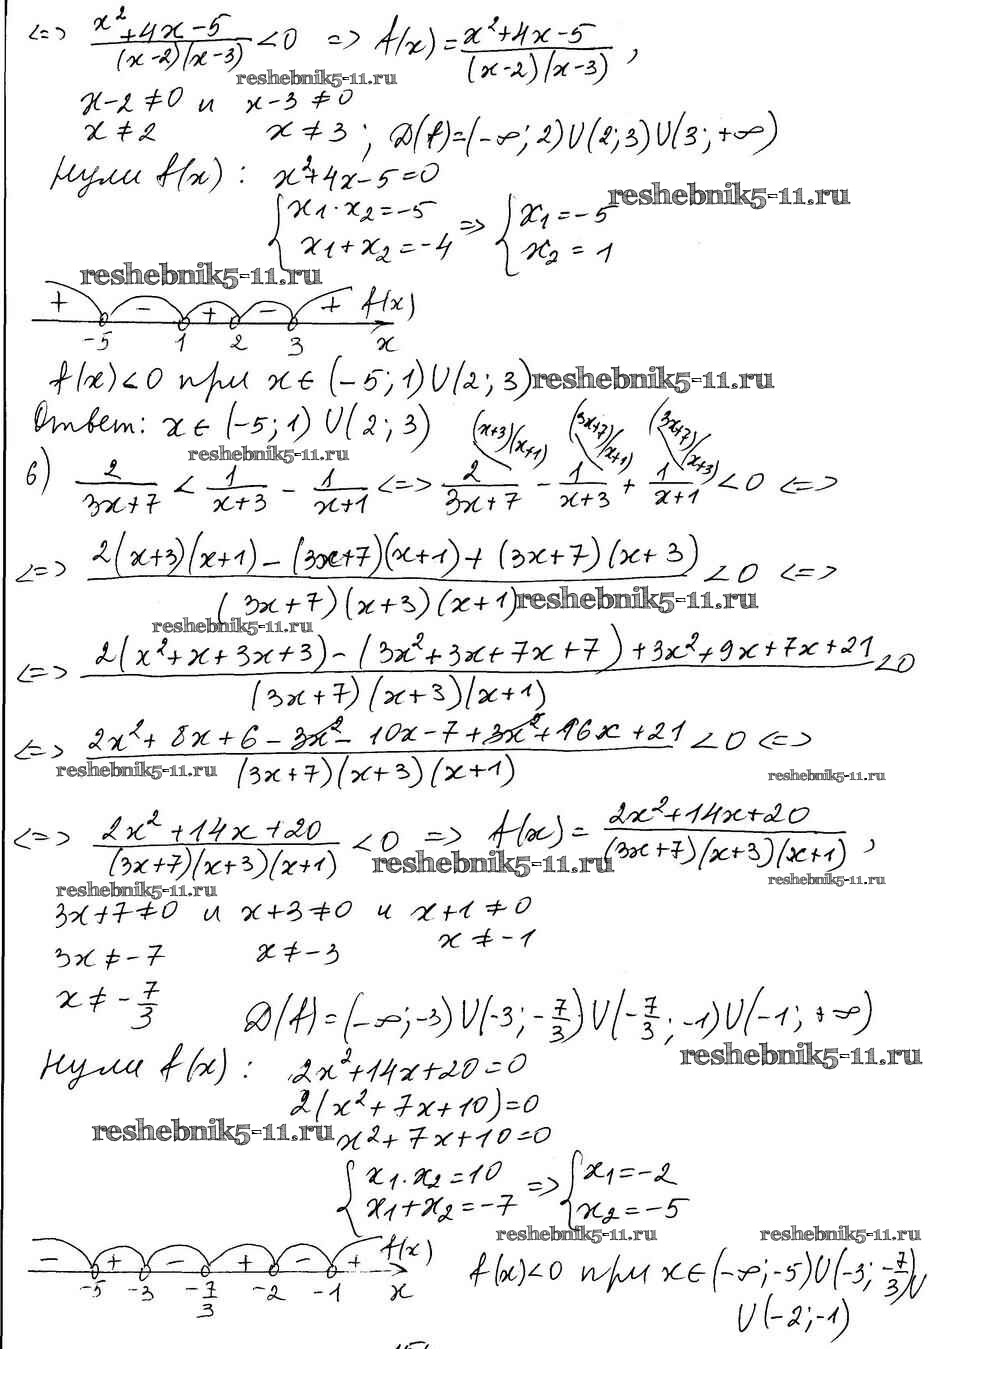 <=> x²+4x-5/(x-2)(x-3) <0 => f(x)=x²+4x-5/(x-2)(x-3),
reshebnik5-11.ru
x-2≠0 и x-3≠0
x≠2 x≠3; D(f)=(-∞;2)U(2;3)U(3;+∞)
Нули f(x): x²+4x-5=0
reshebnik5-11.ru
{x₁·x₂=-5 => {x₁=-5
x₁+x₂=-4 x₂=1
reshebnik5-11.ru
+ - + - + f(x)
-5 1 2 3 x
f(x)<0 при x∈(-5;1)U(2;3) reshebnik5-11.ru
Ответ: x∈(-5;1)U(2;3)
(x+3)(x+1) (3x+7)(x+1) (3x+7)(x+3)
reshebnik5-11.ru
6) 2/3x+7 < 1/x+3 - 1/x+1 <=> 2/3x+7 - 1/x+3 + 1/x+1 <0 <=>
<=> 2(x+3)(x+1)-(3x+7)(x+1)+(3x+7)(x+3)/(3x+7)(x+3)(x+1) <0 <=>
reshebnik5-11.ru
reshebnik5-11.ru
<=> 2(x²+x+3x+3)-(3x²+3x+7x+7)+3x²+9x+7x+21/(3x+7)(x+3)(x+1) <0
<=> 2x²+8x+6-3x²-10x-7+3x²+16x+21/(3x+7)(x+3)(x+1) <0 <=>
reshebnik5-11.ru reshebnik5-11.ru
<=> 2x²+14x+20/(3x+7)(x+3)(x+1) <0 => f(x)=2x²+14x+20/(3x+7)(x+3)(x+1),
reshebnik5-11.ru
reshebnik5-11.ru reshebnik5-11.ru
3x+7≠0 и x+3≠0 и x+1≠0
3x≠-7 x≠-3 x≠-1
x≠-7/3 D(f)=(-∞;-3)U(-3;-7/3)U(-7/3;-1)U(-1;+∞)
reshebnik5-11.ru
Нули f(x): 2x²+14x+20=0
2(x²+7x+10)=0
reshebnik5-11.ru x²+7x+10=0
{x₁·x₂=10 => {x₁=-2
x₁+x₂=-7 x₂=-5
reshebnik5-11.ru reshebnik5-11.ru
- + - + - + f(x)
-5 -3 -7/3 -2 -1 x
f(x)<0 при x∈(-∞;-5)U(-3;-7/3)U
U(-2;-1)